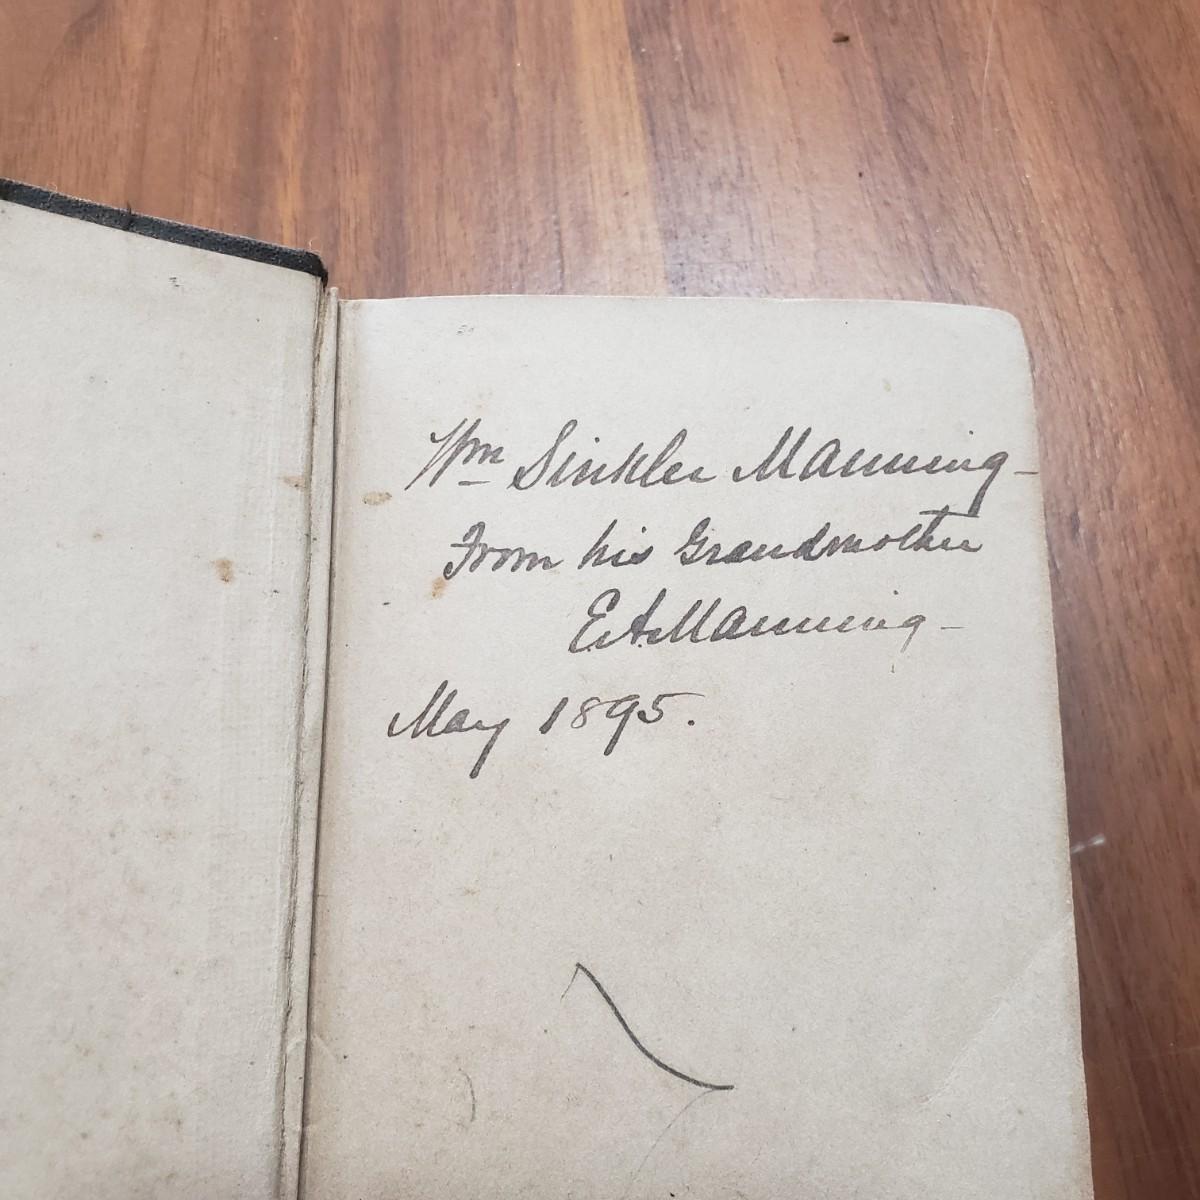 Wm Sinkler Manning -
From his Grandmother
E. A. Manning -
May 1895.